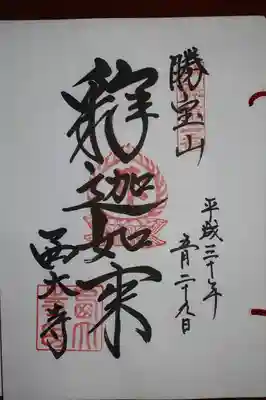 勝宝山
釈迦如来
西大寺
平成三十年
五月二十九日